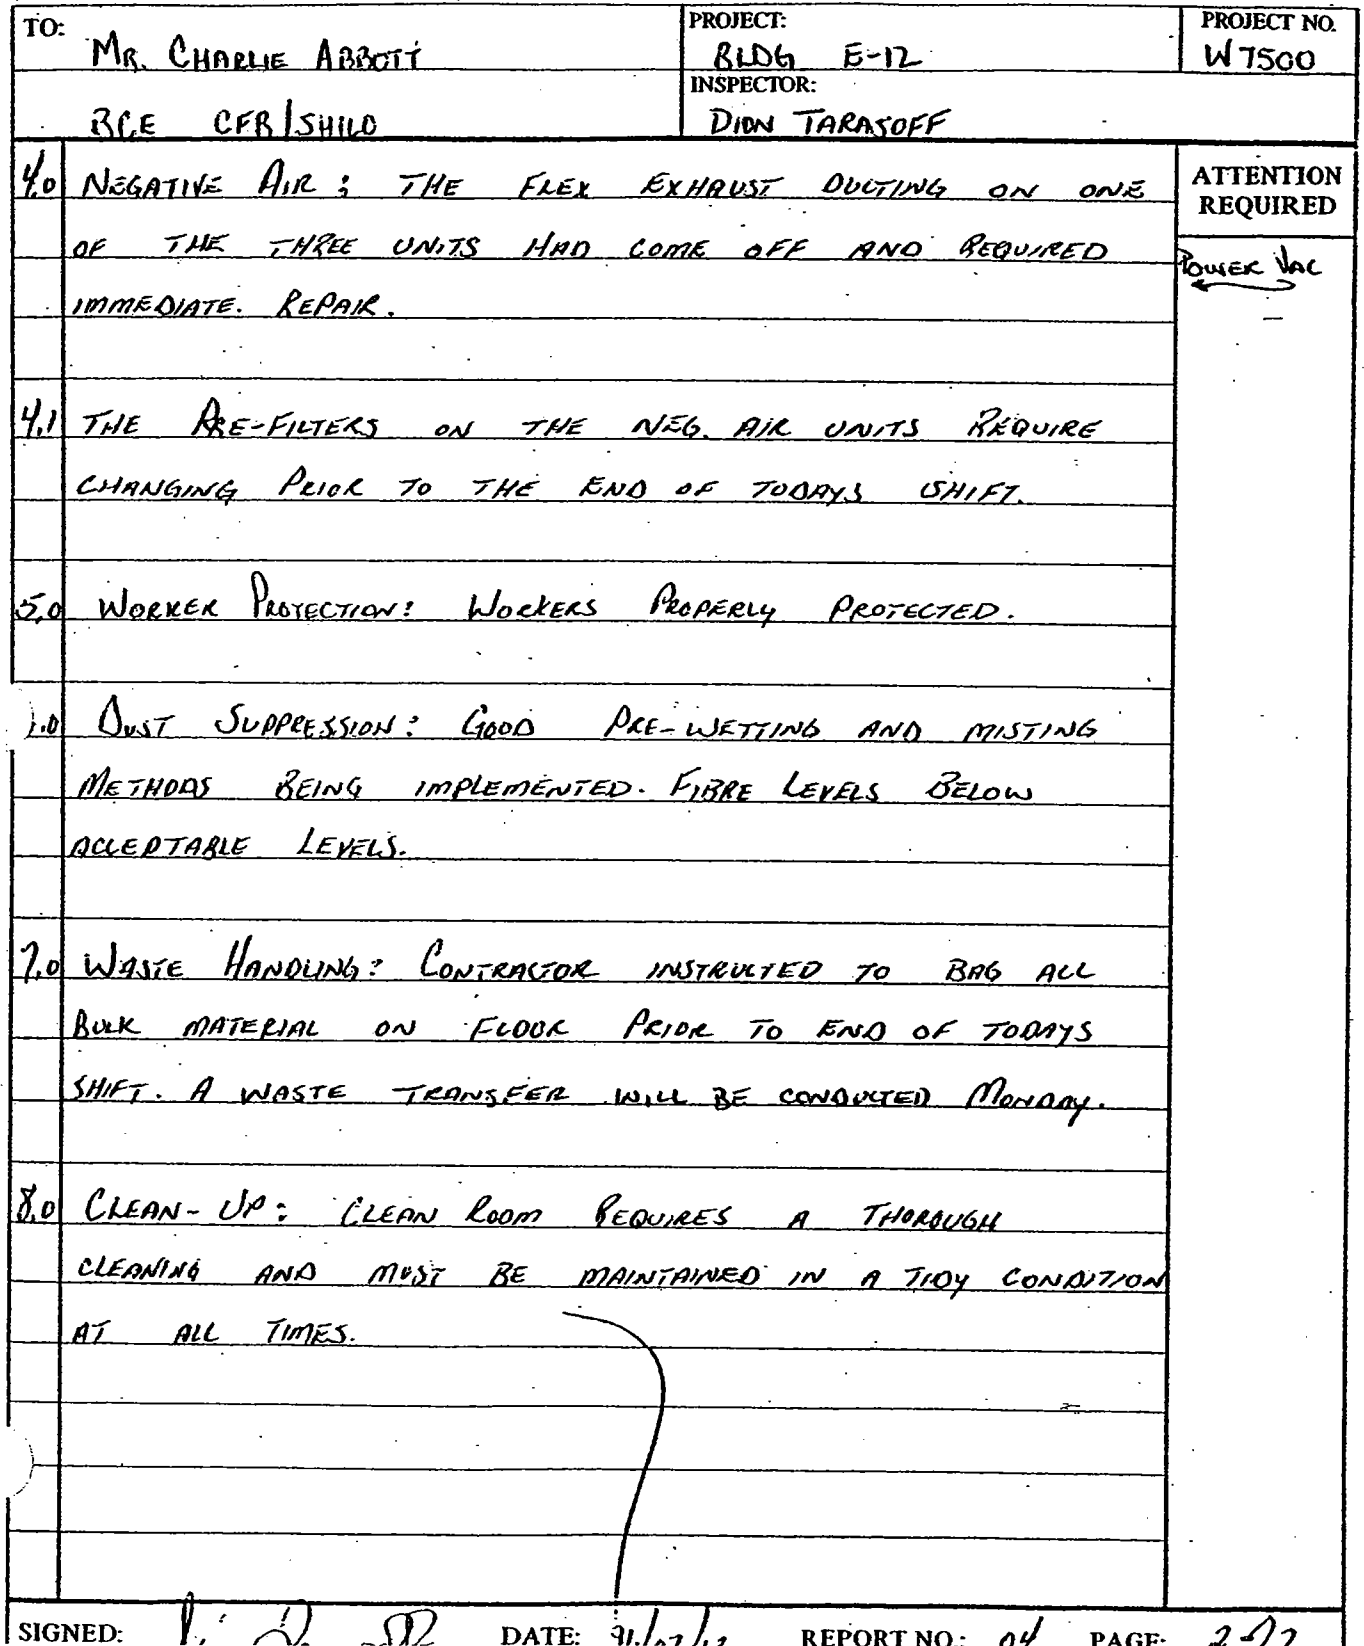 TO: MR. CHARLIE ABBOTT
PROJECT: BLDG E-12
PROJECT NO. W7500
BCE CFB/SHILO
INSPECTOR: DION TARASOFF
4.0 NEGATIVE AIR: THE FLEX EXHAUST DUCTING ON ONE
OF THE THREE UNITS HAD COME OFF AND REQUIRED
IMMEDIATE. REPAIR.
ATTENTION
REQUIRED
POWER VAC
4.1 THE PRE-FILTERS ON THE NEG. AIR UNITS REQUIRE
CHANGING PRIOR TO THE END OF TODAYS SHIFT.
5.0 WORKER PROTECTION: WORKERS PROPERLY PROTECTED.
.0 DUST SUPPRESSION: GOOD PRE-WETTING AND MISTING
METHODS BEING IMPLEMENTED. FIBRE LEVELS BELOW
ACCEPTABLE LEVELS.
7.0 WASTE HANDLING: CONTRACTOR INSTRUCTED TO BAG ALL
BULK MATERIAL ON FLOOR PRIOR TO END OF TODAYS
SHIFT. A WASTE TRANSFER WILL BE CONDUCTED MONDAY.
8.0 CLEAN-UP: CLEAN ROOM REQUIRES A THOROUGH
CLEANING AND MUST BE MAINTAINED IN A TIDY CONDITION
AT ALL TIMES.
SIGNED: DATE: REPORT NO.: 04 PAGE: